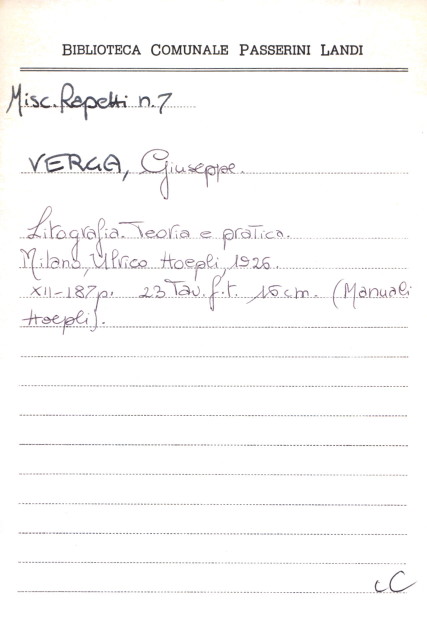 BIBLIOTECA COMUNALE PASSERINI LANDI
Misc. Rapetti n. 7
VERGA, Giuseppe.
Litografia. Teoria e pratica.
Milano, Ulrico Hoepli, 1926.
XII-187 p. 23 Tav. f.t. 15 cm. (Manuali
Hoepli).
cC